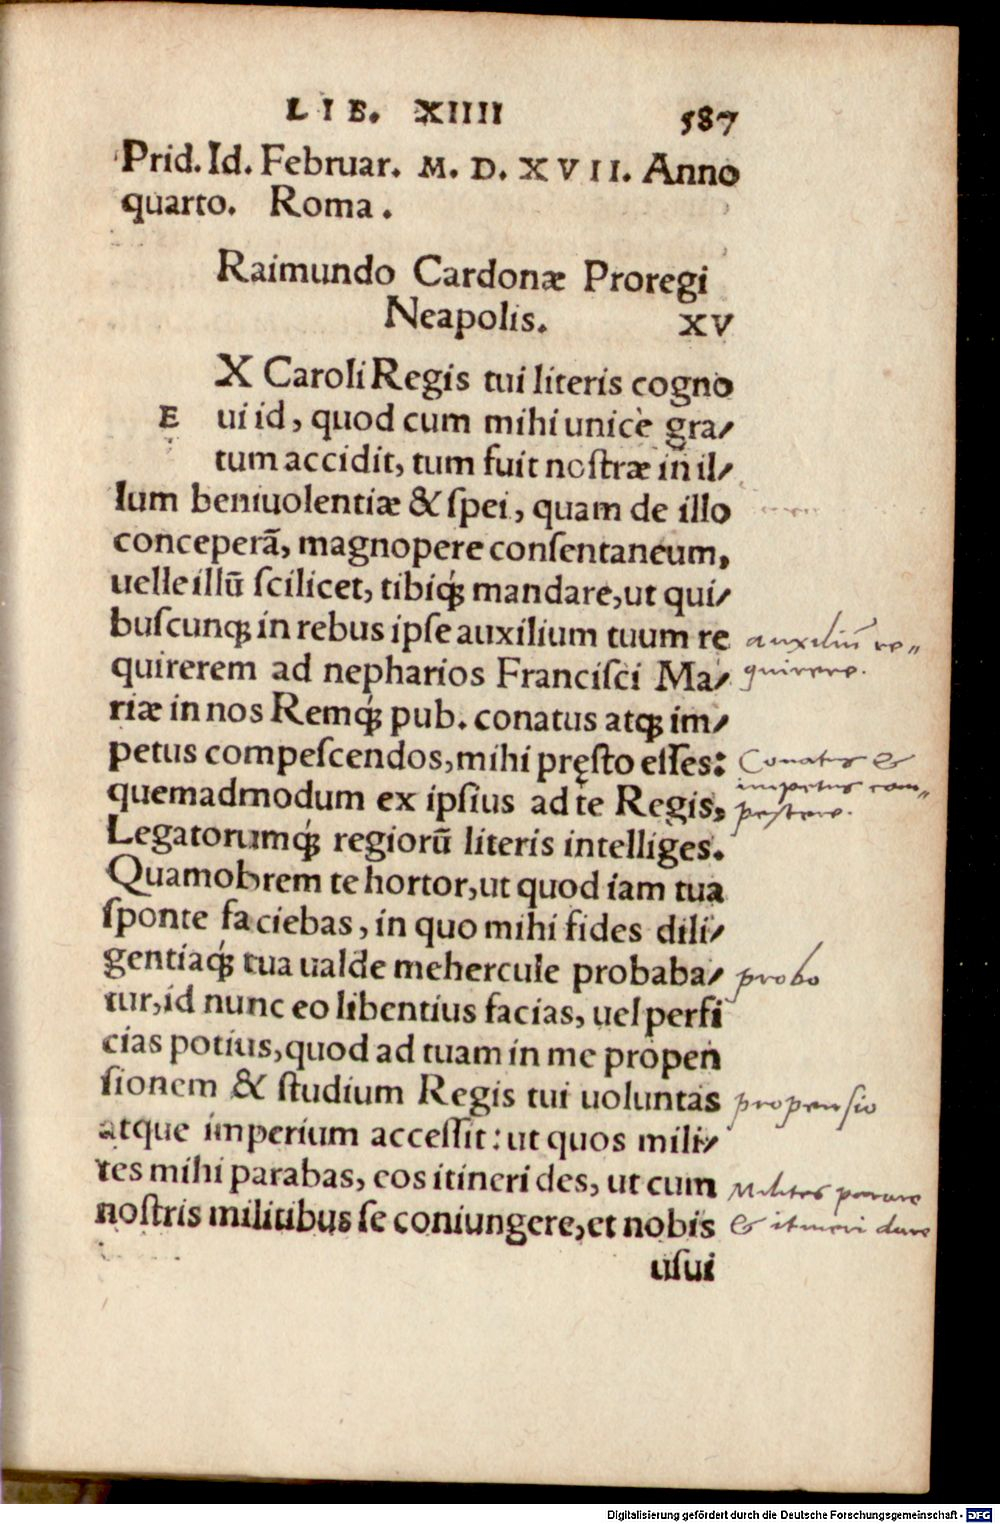 LIB. XIIII 587
Prid. Id. Februar. M. D. XVII. Anno
quarto. Roma.
Raimundo Cardonæ Proregi
Neapolis. XV
X Caroli Regis tui literis cogno
E ui id, quod cum mihi unicè gra/
tum accidit, tum fuit nostræ in il/
lum beniuolentiæ & spei, quam de illo
conceperā, magnopere consentaneum,
uelle illū scilicet, tibiq́; mandare, ut qui/
buscunq; in rebus ipse auxilium tuum re
auxiliū re„
quirerem ad nepharios Francisci Ma/
quirere.
riæ in nos Remq́; pub. conatus atq; im/
petus compescendos, mihi pręsto esses:
Conatus &
impetus com„
quemadmodum ex ipsius ad te Regis,
pescere.
Legatorumq́; regiorū literis intelliges.
Quamobrem te hortor, ut quod iam tua
sponte faciebas, in quo mihi fides dili/
gentiaq́; tua ualde mehercule probaba/
probo
tur, id nunc eo libentius facias, uel perfi
cias potius, quod ad tuam in me propen
sionem & studium Regis tui uoluntas
propensio
atque imperium accessit: ut quos mili/
tes mihi parabas, eos itineri des, ut cum
Milites parare
nostris militibus se coniungere, et nobis
& itineri dare
usui
Digitalisierung gefördert durch die Deutsche Forschungsgemeinschaft - DFG